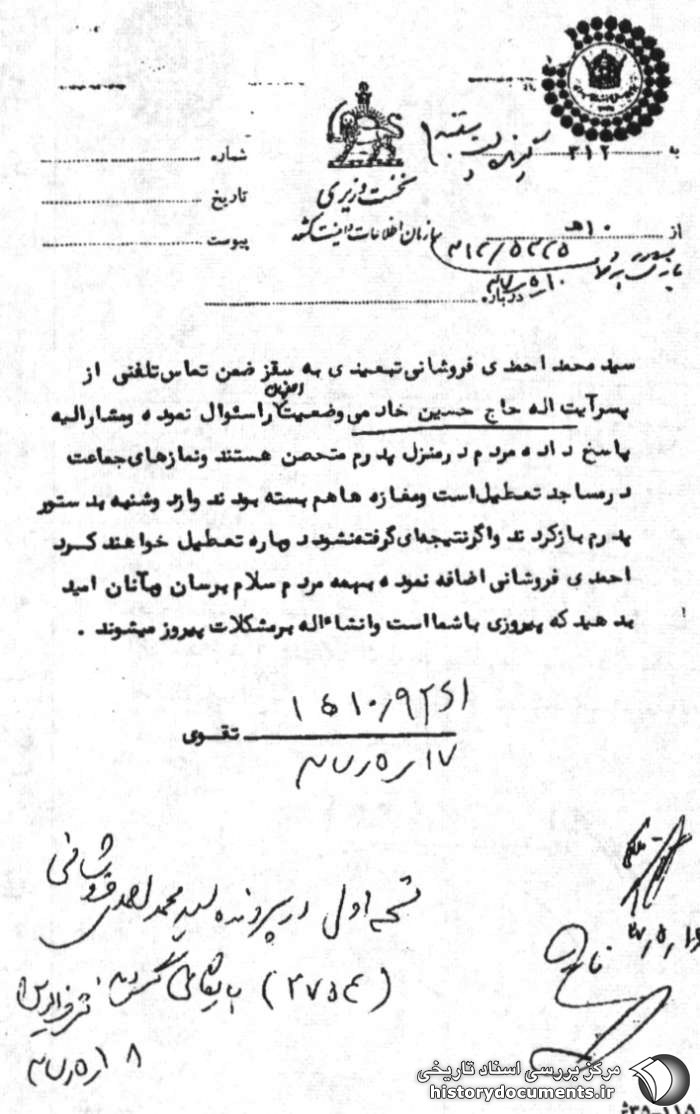 به ۳۱۲
شماره
تاریخ
پیوست
نخست وزیری
سازمان اطلاعات و امنیت کشور
از ۱۰هـ
۳۱۲/۵۳۲۵
۳۷/۵/۱۰
درباره
سید محمد احمدی فروشانی تبعیدی به سقز ضمن تماس تلفنی از
پسرآیت اله حاج حسین خادمی وضعیت اصفهان را سئوال نموده ومشارالیه
پاسخ داده مردم درمنزل پدرم متحصن هستند ونمازهای جماعت
درمساجد تعطیل است ومغازه هاهم بسته بودند وازد وشنبه بدستور
پدرم بازکردند واگرنتیجه‌ای گرفته نشود دوباره تعطیل خواهند کرد
احمدی فروشانی اضافه نموده بهمه مردم سلام برسان وبآنان امید
بدهید که پیروزی باشما است وانشاءاله برمشکلات پیروز میشوند .
تقوی
۳۷/۵/۱۷
نسخه اول در پرونده سید محمد احمدی فروشانی
بایگانی گردد
۳۷/۵/۱۸
مرکز بررسی اسناد تاریخی
historydocuments.ir